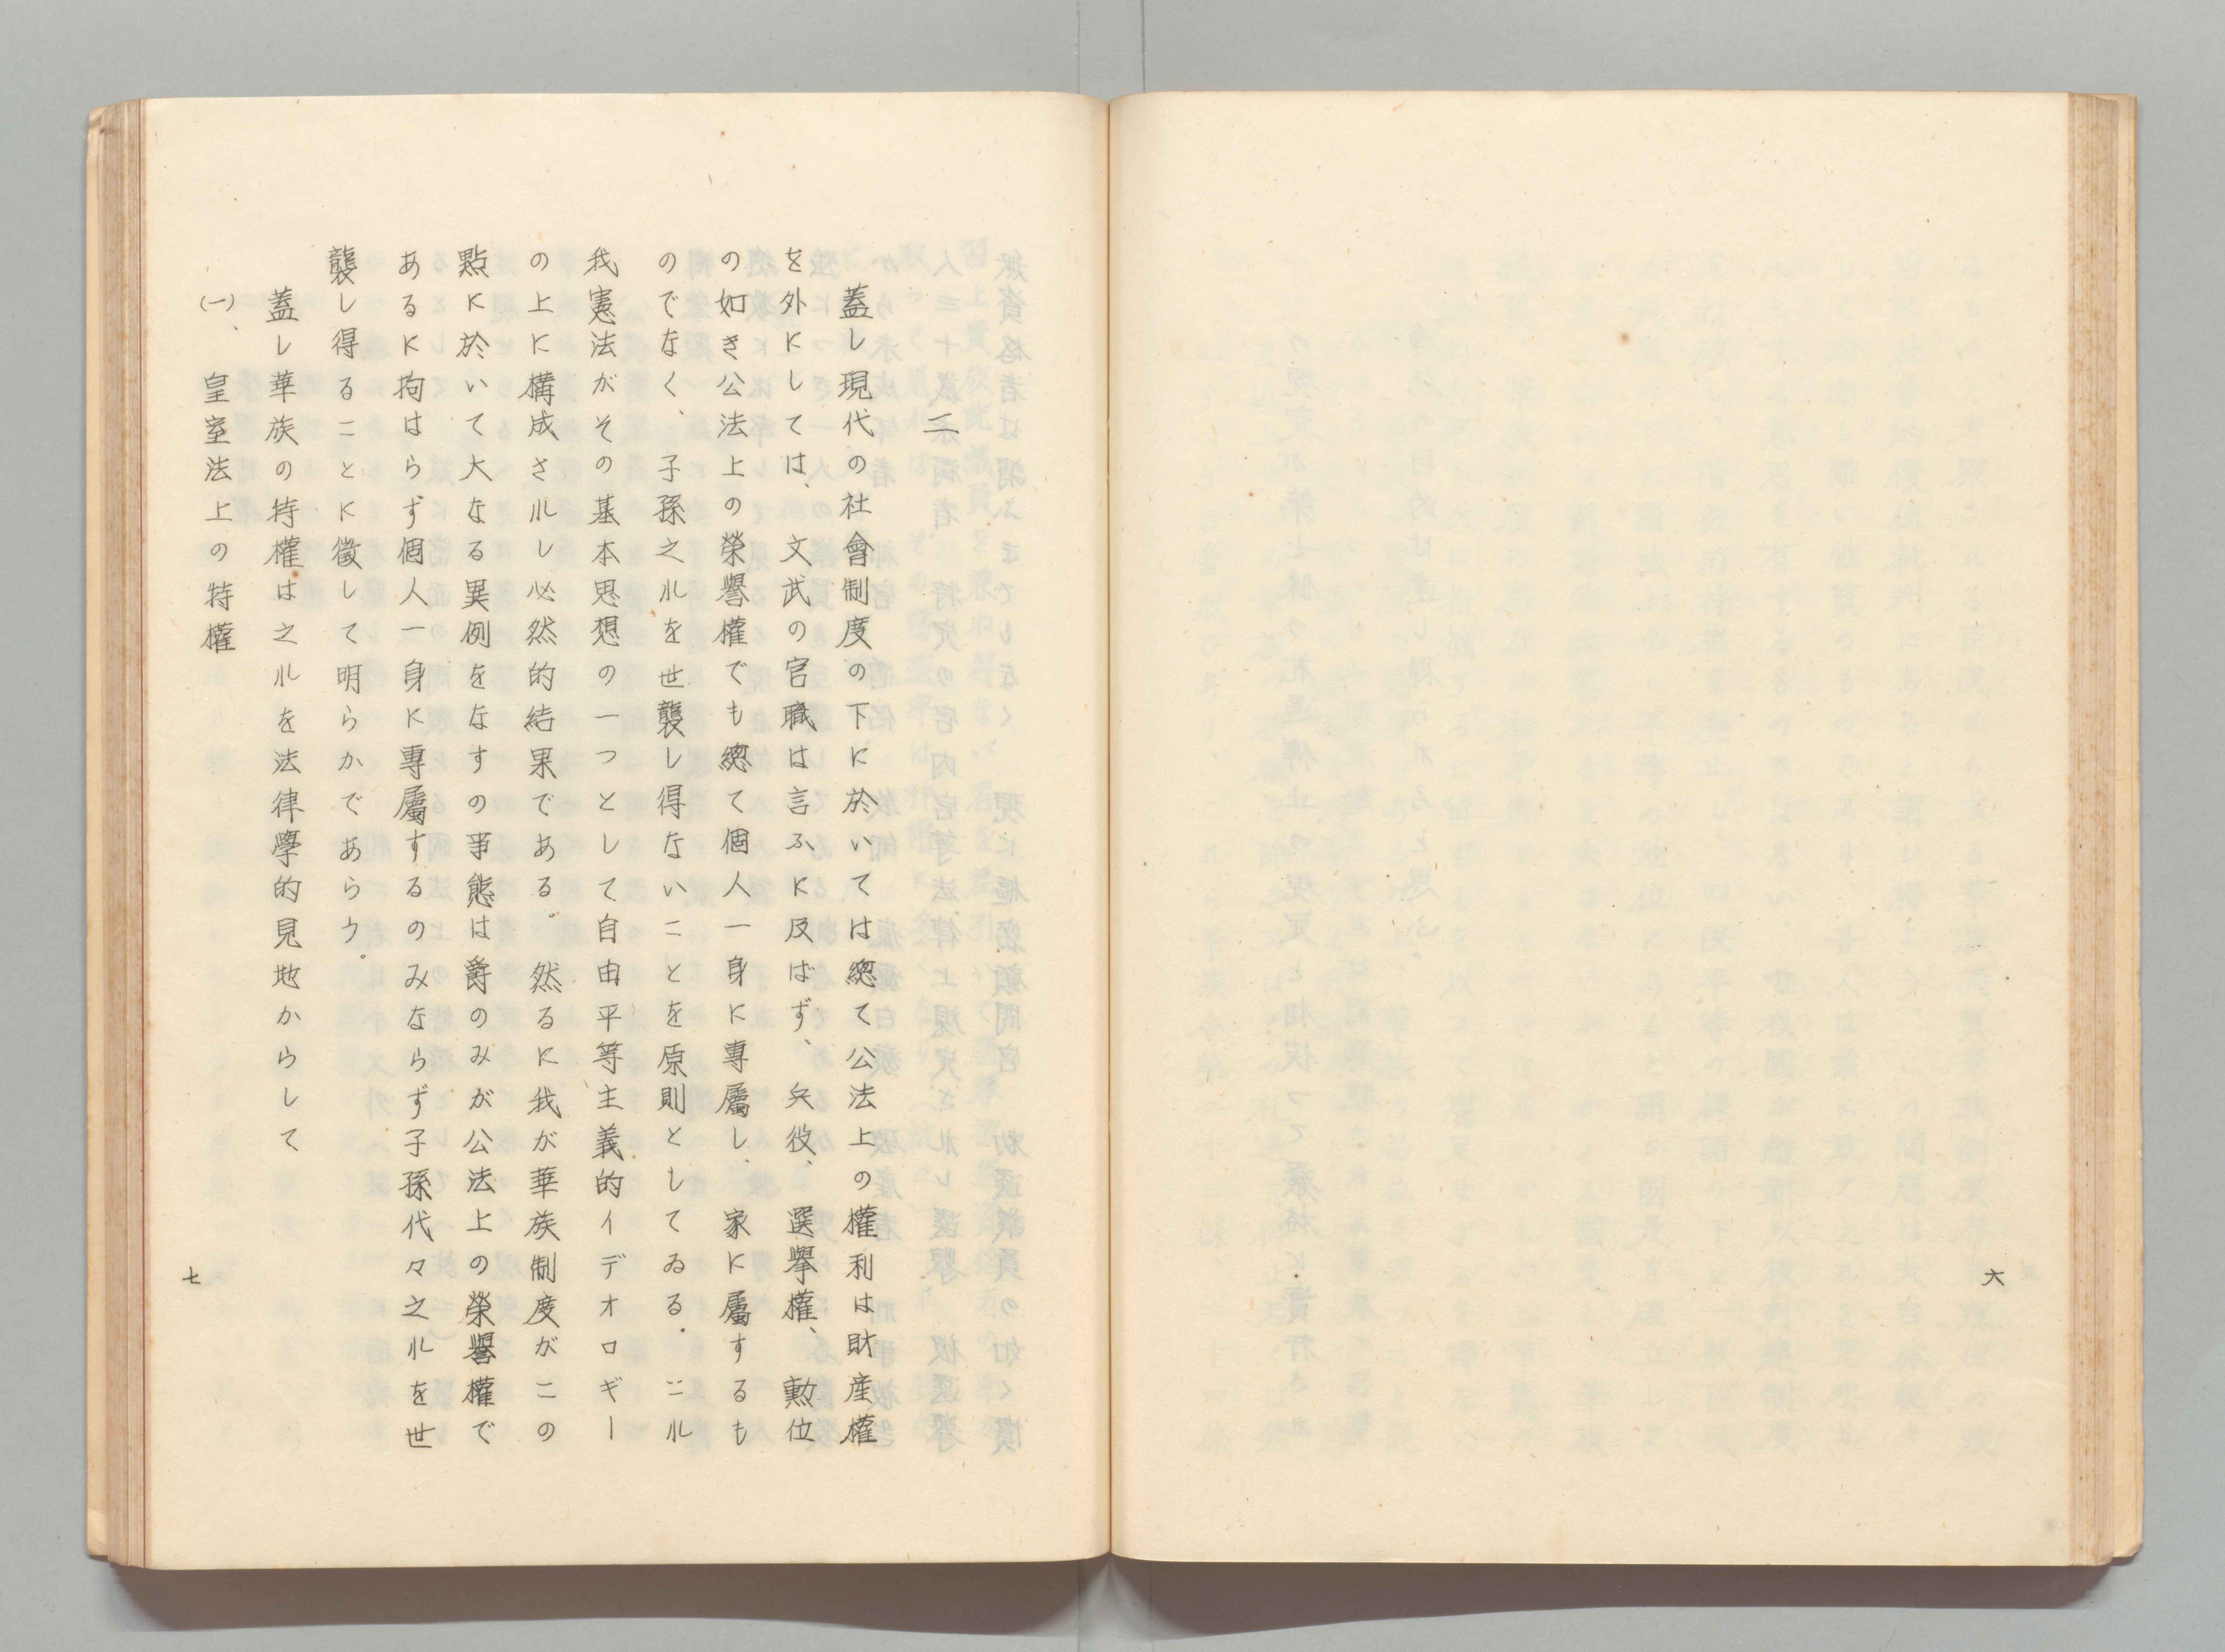 六
二
蓋し現代の社會制度の下に於いては總て公法上の權利は財産權
を外にしては、文武の官職は言ふに及ばず、兵役、選擧權、勲位
の如き公法上の榮譽權でも總て個人一身に專屬し、家に屬するも
のでなく、子孫之れを世襲し得ないことを原則としてゐる。これ
我憲法がその基本思想の一つとして自由平等主義的イデオロギー
の上に構成されし必然的結果である。然るに我が華族制度がこの
點に於いて大なる異例をなすの事態は爵のみが公法上の榮譽權で
あるに拘はらず個人一身に專屬するのみならず子孫代々之れを世
襲し得ることに徵して明らかであらう。
蓋し華族の特權は之れを法律學的見地からして
(一)、皇室法上の特權
七